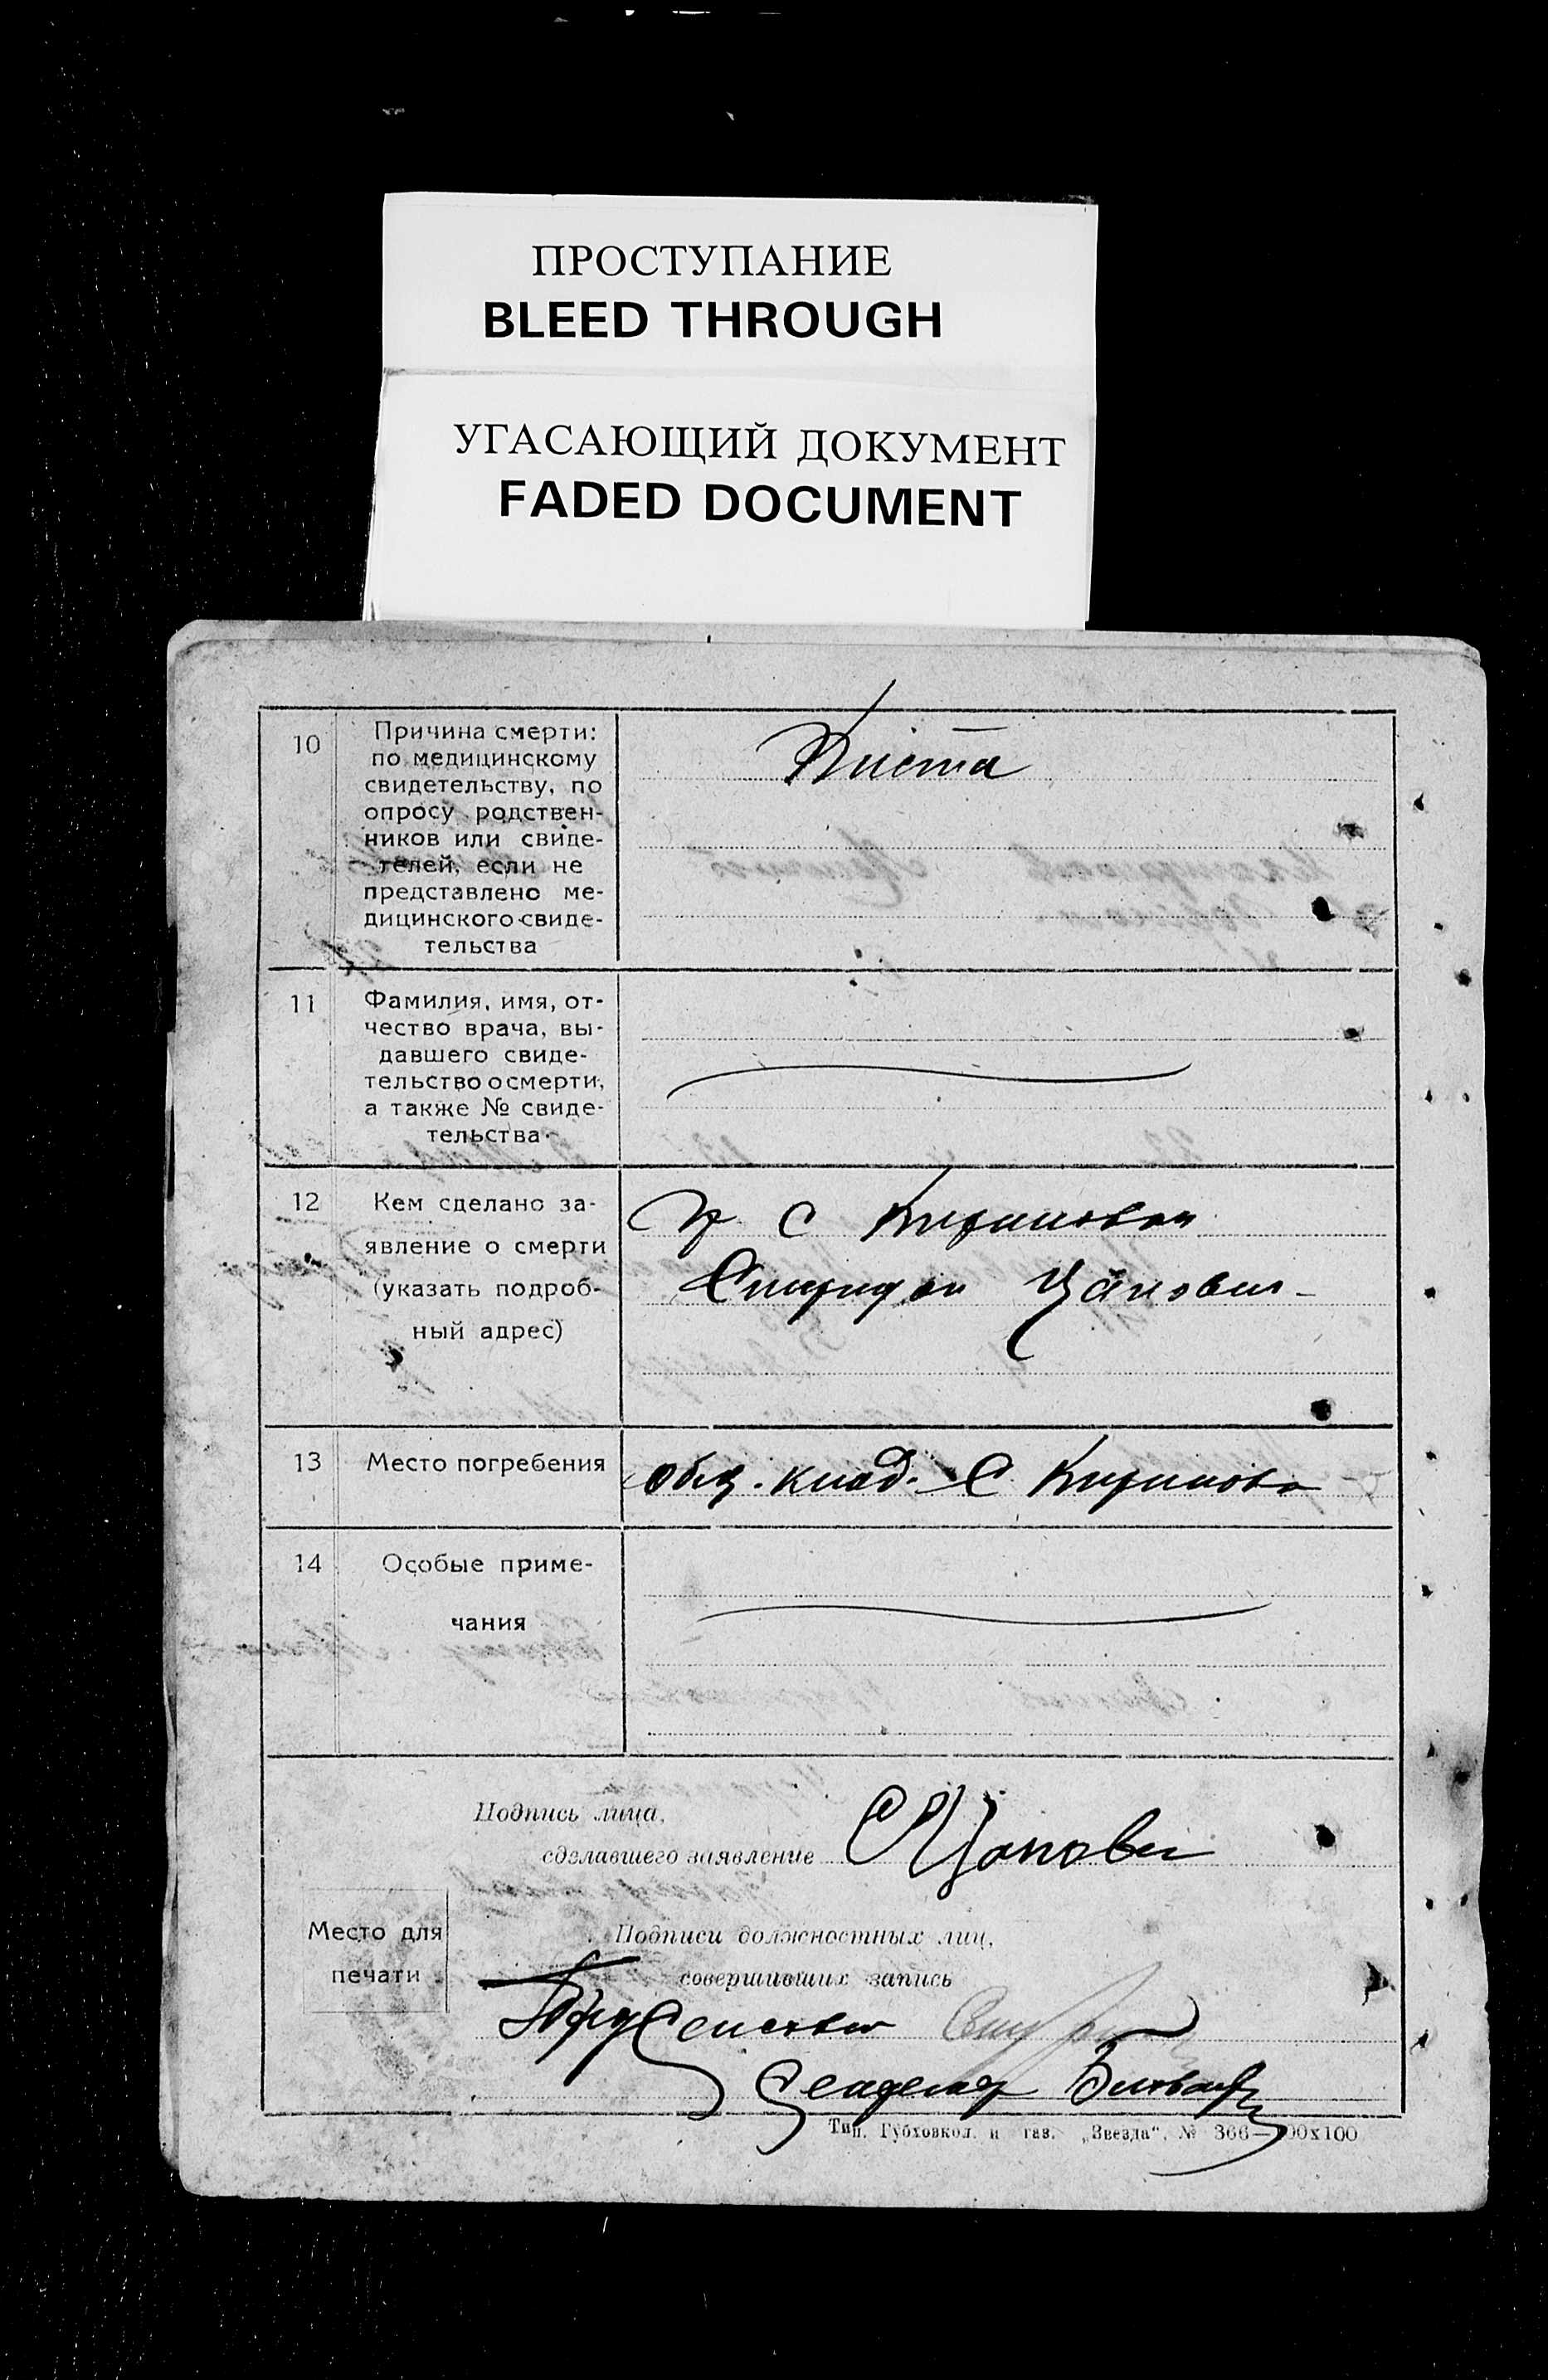 ПРОСТУПАНИЕ
BLEED THROUGH
УГАСАЮЩИЙ ДОКУМЕНТ
FADED DOCUMENT
10
Причина смерти:
по медицинскому
свидетельству, по
опросу родствен-
ников или свиде-
телей, если не
представлено ме-
дицинского свиде-
тельства
Киста
11
Фамилия, имя, от-
чество врача, вы-
давшего свиде-
тельство о смерти,
а также № свиде-
тельства
12
Кем сделано за-
явление о смерти
(указать подроб-
ный адрес)
гр. С
Спиридон
13
Место погребения
общ. клад. С
14
Особые приме-
чания
Подпись лица,
сделавшего заявление
Место для
печати
Подписи должностных лиц,
совершивших запись
Тип. Губховкол. и газ. „Звезда“, № 366—